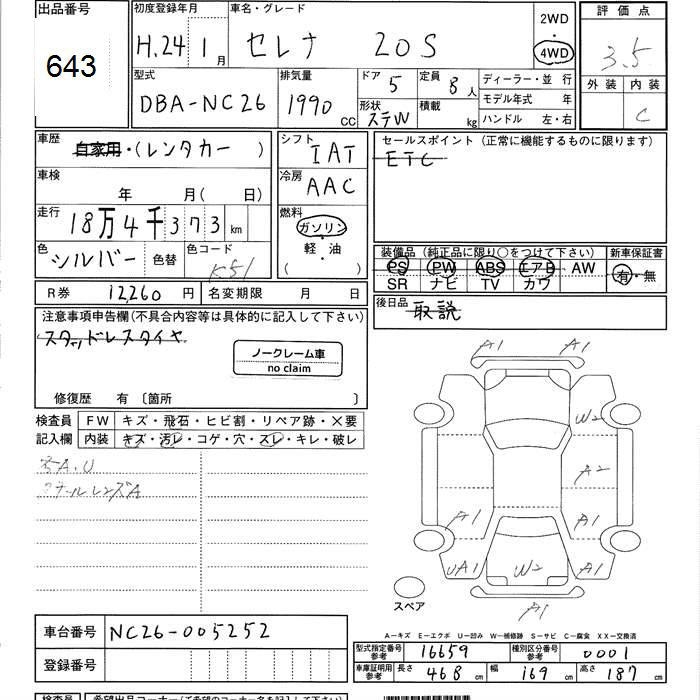 出品番号
643
初度登録年月
H.24 1月
車名・グレード
セレナ 20S
2WD
4WD
評価点
3.5
外装 内装
C
型式
DBA-NC26
排気量
1990 CC
ドア 5
形状 ステW
定員 8人
積載 kg
ディーラー・並行
モデル年式 年
ハンドル 左・右
車歴
自家用・(レンタカー )
車検
年 月( 日)
走行
18万4千373 km
色
シルバー
色替
色コード
K51
シフト
IAT
冷房
AAC
燃料
ガソリン
軽・油
( )
セールスポイント(正常に機能するものに限ります)
ETC
装備品(純正品に限り○をつけて下さい)
PS PW ABS エアB AW
SR ナビ TV カワ
新車保証書
有・無
後日品
取説
R券 12,260 円
名変期限 月 日
注意事項申告欄(不具合内容等は具体的に記入して下さい)
スタッドレスタイヤ
ノークレーム車
no claim
修復歴 有 〔箇所 〕
検査員
記入欄
FW キズ・飛石・ヒビ割・リペア跡・×要
内装 キズ・汚レ・コゲ・穴・スレ・キレ・破レ
A.U
ールレンズA
A1 A1
W2
A2
A1 A1
UA1 W2 A1
A1
スペア
A−キズ E−エクボ U−凹み W−補修跡 S−サビ C−腐食 XX−交換済
車台番号 NC26-005252
登録番号
型式指定番号
参考
16659
種別区分番号
参考
0001
車庫証明用
参考
長さ 468 cm 幅 169 cm 高さ 187 cm
検査員 希望出品コーナー(ご希望のコーナー名